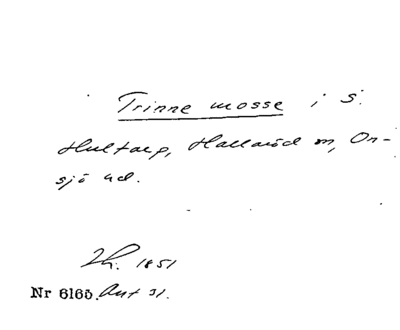 Trinne mosse i S.
Hultarp, Hallaröd m, On-
sjö hd.
Th. 1851
Nr 6165. Ant 31.